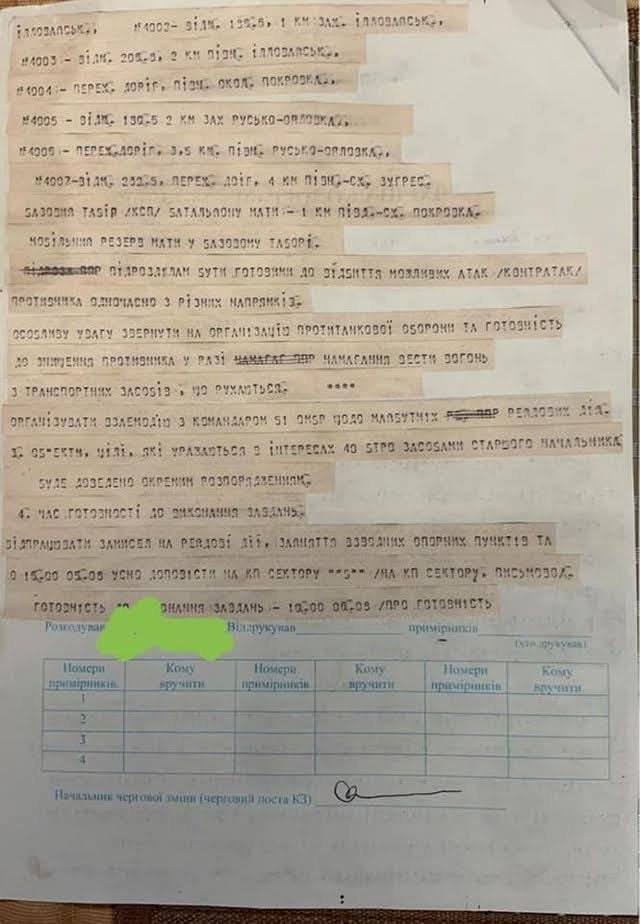 ІЛЛОВАЙСЬК., #4002- ВІДМ. 138.6, 1 КМ ЗАХ. ІЛЛОВАЙСЬК.,
#4003 - ВІДМ. 206.9, 2 КМ ПІВН. ІЛЛОВАЙСЬК.,
#4004 - ПЕРЕХ. ДОРІГ, ПІВН. ОКОЛ. ПОКРОВКА.,
#4005 - ВІДМ. 190.5 2 КМ ЗАХ РУСЬКО-ОРЛОВКА.,
#4006 - ПЕРЕХ.ДОРІГ, 3,5 КМ. ПІВН. РУСЬКО-ОРЛОВКА.,
#4007-ВІДМ. 232.5, ПЕРЕХ. ДОІГ, 4 КМ ПІВН.-СХ. ЗУГРЕС.
БАЗОВИЙ ТАБІР /КСП/ БАТАЛЬЙОНУ МАТИ - 1 КМ ПІВД.-СХ. ПОКРОВКА.
МОБІЛЬНИЙ РЕЗЕРВ МАТИ У БАЗОВОМУ ТАБОРІ.
ПІДРОЗДІЛАМ БУТИ ГОТОВИМИ ДО ВІДБИТТЯ МОЖЛИВИХ АТАК /КОНТРАТАК/
ПРОТИВНИКА ОДНОЧАСНО З РІЗНИХ НАПРЯМКІВ.
ОСОБЛИВУ УВАГУ ЗВЕРНУТИ НА ОРГАНІЗАЦІЮ ПРОТИТАНКОВОЇ ОБОРОНИ ТА ГОТОВНІСТЬ
ДО ЗНИЩЕННЯ ПРОТИВНИКА У РАЗІ НАМАГАННЯ ВЕСТИ ВОГОНЬ
З ТРАНСПОРТНИХ ЗАСОБІВ, ЩО РУХАЮТЬСЯ. ****
ОРГАНІЗУВАТИ ВЗАЄМОДІЮ З КОМАНДИРОМ 51 ОМБР ЩОДО МАЙБУТНІХ РЕЙДОВИХ ДІЙ.
3. ОБ"ЄКТИ, ЦІЛІ, ЯКІ УРАЖАЮТЬСЯ В ІНТЕРЕСАХ 40 БТРО ЗАСОБАМИ СТАРШОГО НАЧАЛЬНИКА
БУДЕ ДОВЕДЕНО ОКРЕМИМ РОЗПОРЯДЖЕННЯМ.
4. ЧАС ГОТОВНОСТІ ДО ВИКОНАННЯ ЗАВДАНЬ.
ВІДПРАЦЮВАТИ ЗАМИСЕЛ НА РЕЙДОВІ ДІЇ, ЗАЙНЯТТЯ ВЗВОДНИХ ОПОРНИХ ПУНКТІВ ТА
О 15.00 05.08 УСНО ДОПОВІСТИ НА КП СЕКТОРУ ""Б"" /НА КП СЕКТОРУ, ПИСЬМОВО/.
ГОТОВНІСТЬ ОНАННЯ ЗАВДАНЬ - 10.00 06.08 /ПРО ГОТОВНІСТЬ
Розкодував Віддрукував примірників
(хто друкував)
Номери примірників. Кому вручити Номери примірників Кому вручити Номери примірників Кому вручити
1
2
3
4
Начальник чергової зміни (черговий поста КЗ)